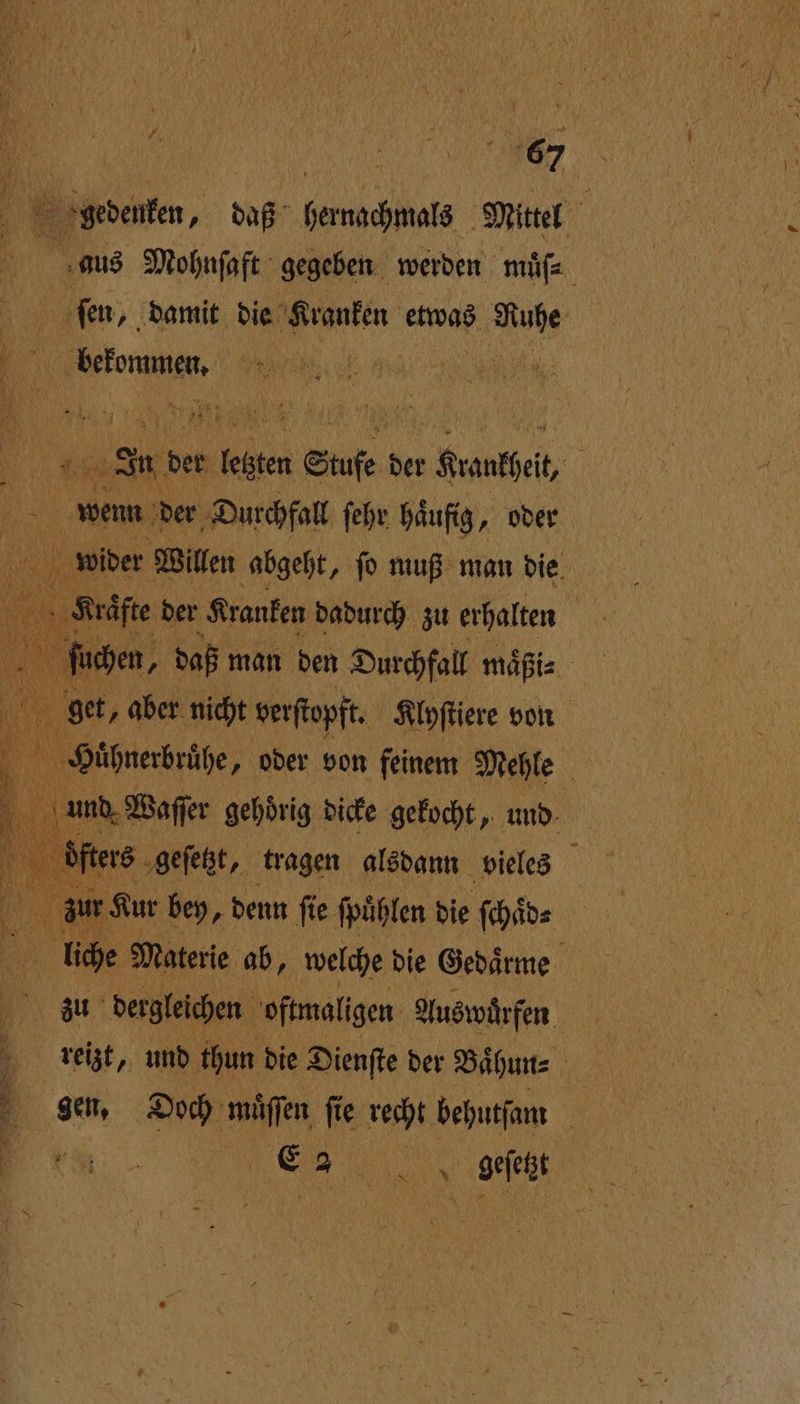 67
gedenken, daß hernachmals Mittel
aus Mohnſaft gegeben werden muͤſ⸗
ſen, damit die Kranken etwas Ruhe
bekommen.
In der letzten Stufe der Krankheit,
wenn der Durchfall ſehr haͤufig, oder
wider Willen abgeht, ſo muß man die
Kraͤfte der Kranken dadurch zu erhalten
ſuchen, daß man den Durchfall maͤßi⸗
get, aber nicht verſtopft. Klyſtiere von
Huͤhnerbruͤhe, oder von feinem Mehle
und Waſſer gehoͤrig dicke gekocht, und
oͤfters geſetzt, tragen alsdann vieles
zur Kur bey, denn ſie ſpuͤhlen die ſchaͤd⸗
liche Materie ab, welche die Gedaͤrme
zu dergleichen oftmaligen Auswuͤrfen
reizt, und thun die Dienſte der Baͤhun⸗
gen. Doch muͤſſen ſie recht behutſam
E 2 geſetzt